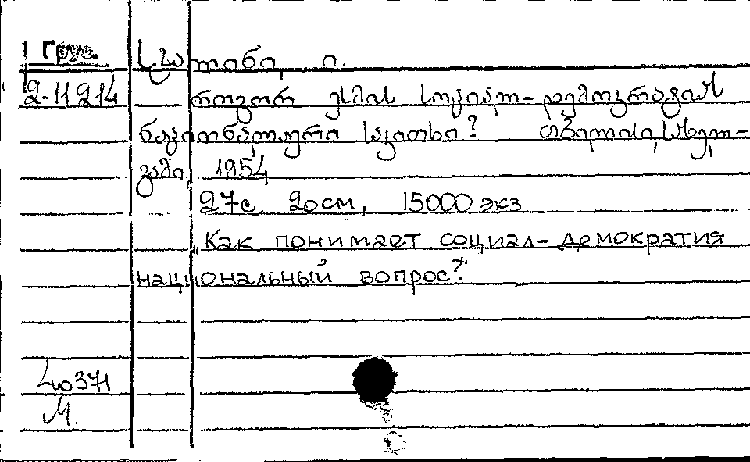 1 Груз.
2-11214
სტალინი, ი.
როგორ ესმის სოციალ-დემოკრატიას
ნაციონალური საკითხი? თბილისი, სახელ-
გამი, 1954
27с 20см, 15000 экз
„Как понимает социал-демократия
национальный вопрос?"
М.